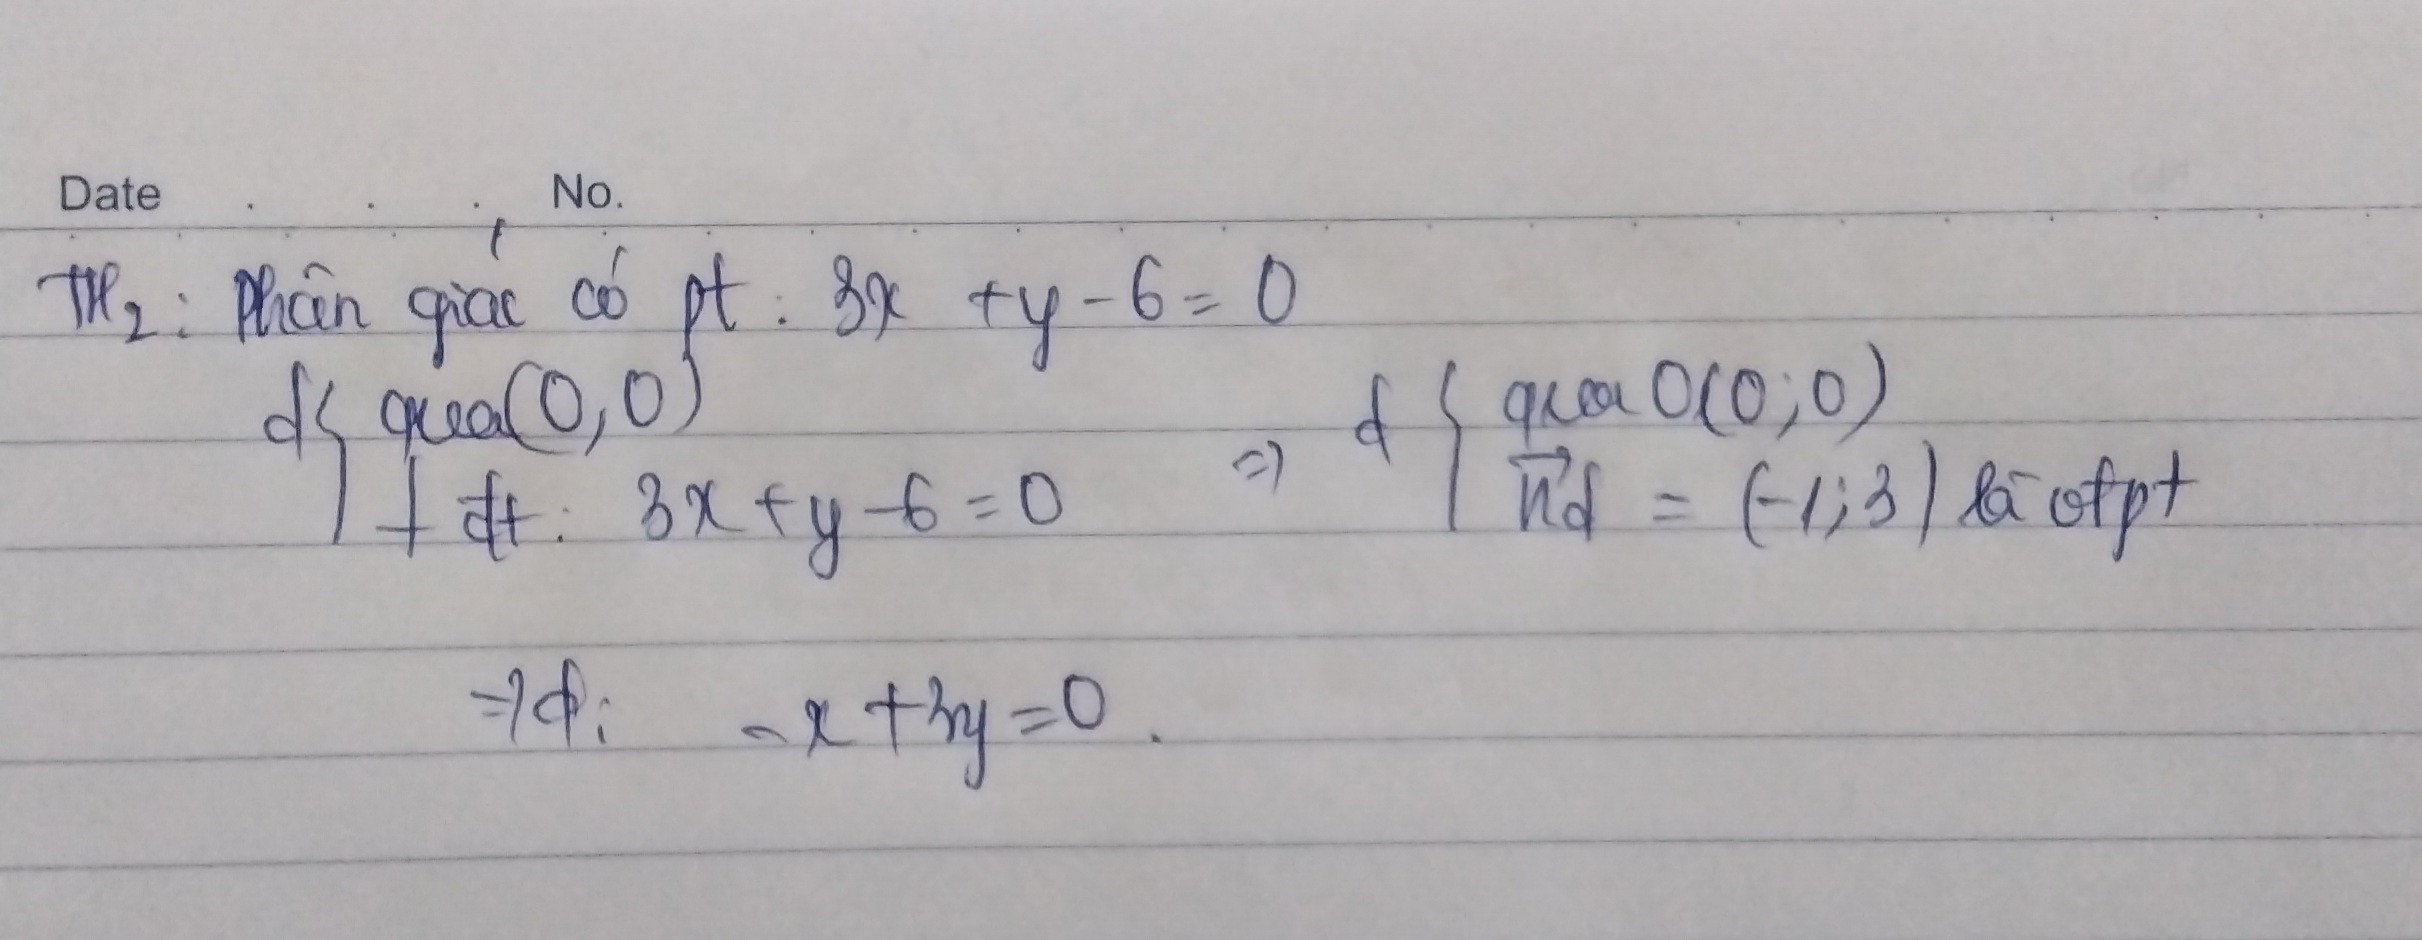 Date . . . No.
TH2: Phân giác có pt: 3x + y - 6 = 0
d { qua (0,0)
⊥ đt: 3x + y - 6 = 0
=> d { qua O(0;0)
n⃗d = (-1;3) là vtpt
=> d: -x + 3y = 0.